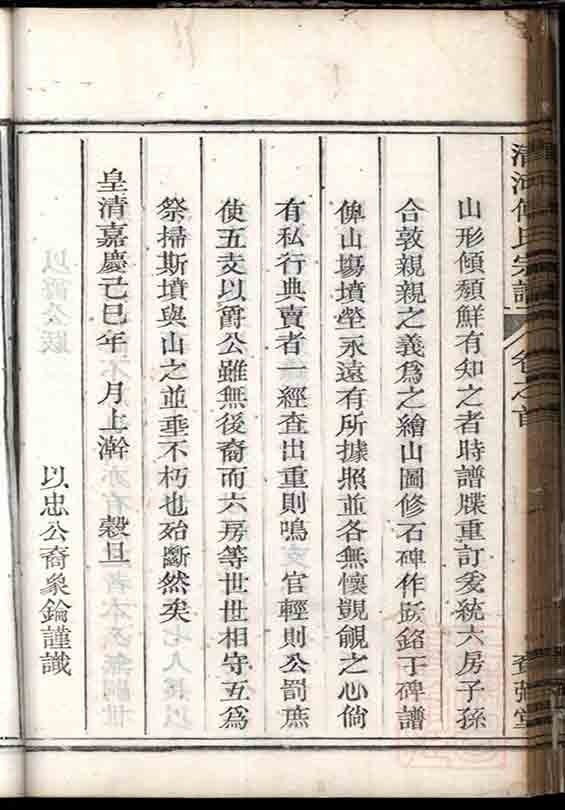 清河傅氏宗譜
卷之首
山形傾頹鮮有知之者時譜牒重訂爰統六房子孫
合敦親親之義爲之繪山圖修石碑作跋銘于碑譜
俾山塲墳塋永遠有所據照並各無懷覬覦之心倘
有私行典賣者一經查出重則鳴 官輕則公罰庶
使五支以爵公雖無後裔而六房等世世相守互爲
祭掃斯墳與山之並垂不朽也殆斷然矣
皇清嘉慶己巳年 月上澣 穀旦
以忠公裔象鑰謹識